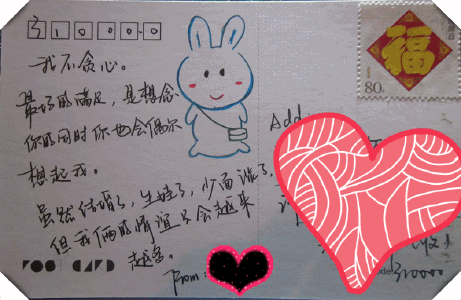 我不贪心。
最好的满足，是想念
你的同时你也会偶尔
想起我。
虽然结婚了，生娃了，少面谈了，
但我俩的情谊只会越来
越多。
POST CARD
From:
Add
福
80
310000